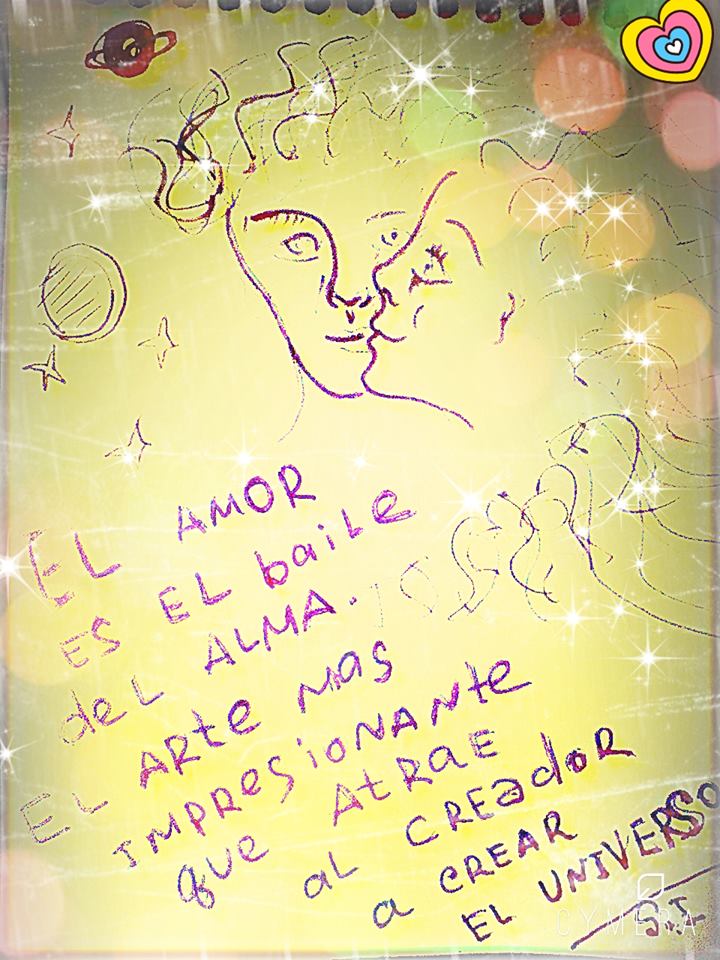 EL AMOR
ES EL baiLe
deL ALMA.
EL ARte mas
IMPRESioNANte
que AtRaE
aL CREadoR
a CREAR
EL UNIVERSO
S.I
CYMERA